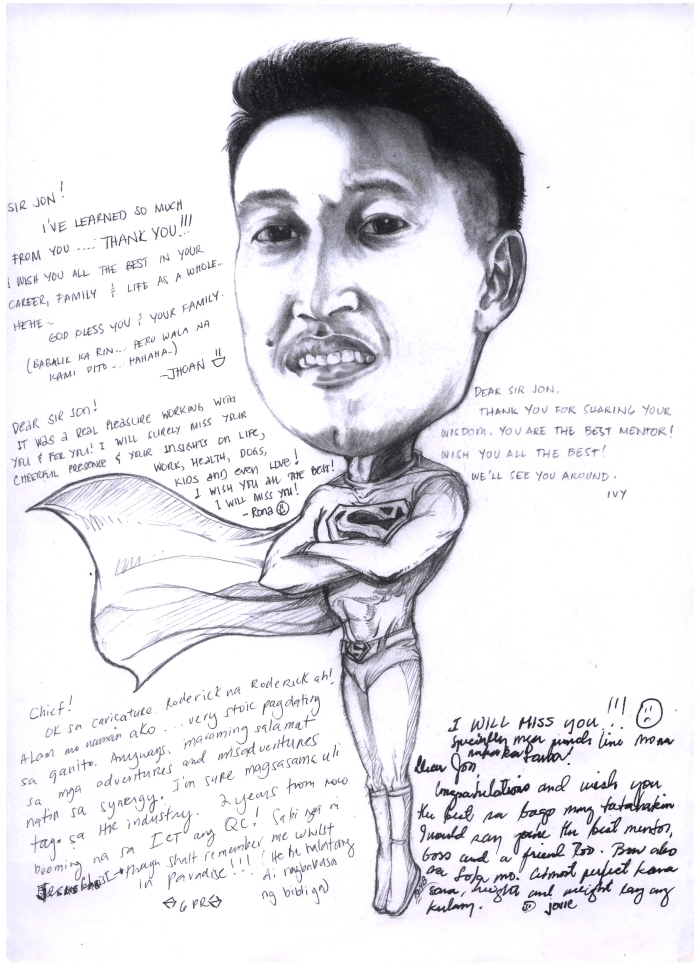 SIR JON!
I'VE LEARNED SO MUCH
FROM YOU .... THANK YOU!!!
I WISH YOU ALL THE BEST IN YOUR
CAREER, FAMILY & LIFE AS A WHOLE..
HEHE ~
GOD BLESS YOU & YOUR FAMILY.
(BABALIK KA RIN... PERO WALA NA
KAMI DITO ... HAHAHA..)
~JHOAN
DEAR SIR JON!
IT WAS A REAL PLEASURE WORKING WITH
YOU & FOR YOU! I WILL SURELY MISS YOUR
CHEERFUL PRESENCE & YOUR INSIGHTS ON LIFE,
WORK, HEALTH, DOGS,
KIDS AND EVEN LOVE!
I WISH YOU ALL THE BEST!
I WILL MISS YOU!
- Rona
DEAR SIR JON,
THANK YOU FOR SHARING YOUR
WISDOM. YOU ARE THE BEST MENTOR!
WISH YOU ALL THE BEST!
WE'LL SEE YOU AROUND.
IVY
S
Chief!
OK sa caricature. Roderick na Roderick ah!
Alam mo naman ako ... very stoic pagdating
sa ganito. Anyways, maraming salamat
sa mga adventures and misadventures
natin sa synergy. I'm sure magsasama uli
tayo sa HR industry. 2 years from now
booming na sa IET ang QC! Sabi nga ni
though shalt remember me whilst
in paradise!!! (He he halatang
di nagbabasa
ng bibliya)
GPR
I WILL MISS YOU!!!
specially mga punch line mona
Dear Jon,
Congratulations and wish you
the best sa bago mong tatahakin.
I would say you're the best mentor,
boss and a friend too. Bow also
sa mo. Almost perfect kana
sana, height and weight lang ang
kulang. jovie